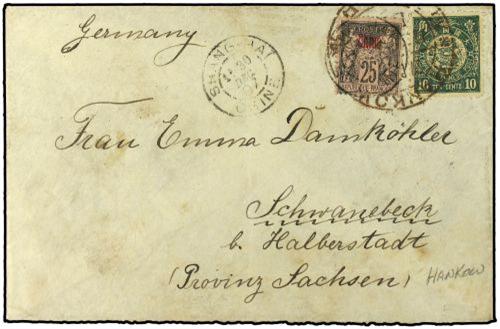 Germany
SHANG-HAI
30
CHINE
Chine
25
10 10
CENTS
Frau Emma Damköhler
Schwanebeck
b. Halberstadt
(Provinz Sachsen)
HANKOW